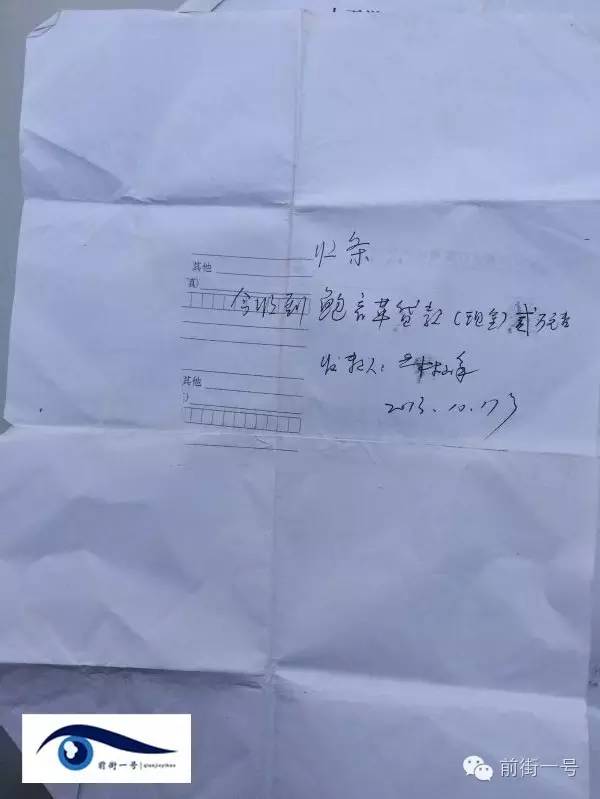 收条
其他
真)
今收到 鲍 革贷款(现金)贰万元
其他
:)
收款人:
2013.10.17号
前街一号 | qianjieyihao
前街一号